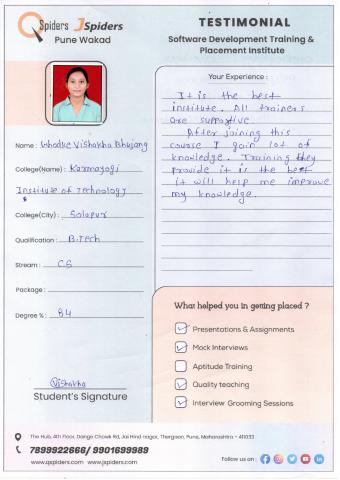 QSpiders JSpiders
Pune Wakad
TESTIMONIAL
Software Development Training &
Placement Institute
Name: Ghodke Vishakha Bhujang
College(Name): Karmayogi
Institute of Technology
College(City): Solapur
Qualification: B.Tech
Stream: CS
Package:
Degree %: 84
Vishakha
Student's Signature
Your Experience:
It is the best
institute. All trainers
are supportive.
After joining this
course I gain lot of
knowledge. Training they
provide it is the best
it will help me improve
my knowledge.
What helped you in getting placed?
Presentations & Assignments
Mock Interviews
Aptitude Training
Quality teaching
Interview Grooming Sessions
The Hub, 4th Floor, Dange Chowk Rd, Jai Hind nagar, Thergaon, Pune, Maharashtra - 411033
7899922666/ 9901699989
www.qspiders.com www.jspiders.com
Follow us on: